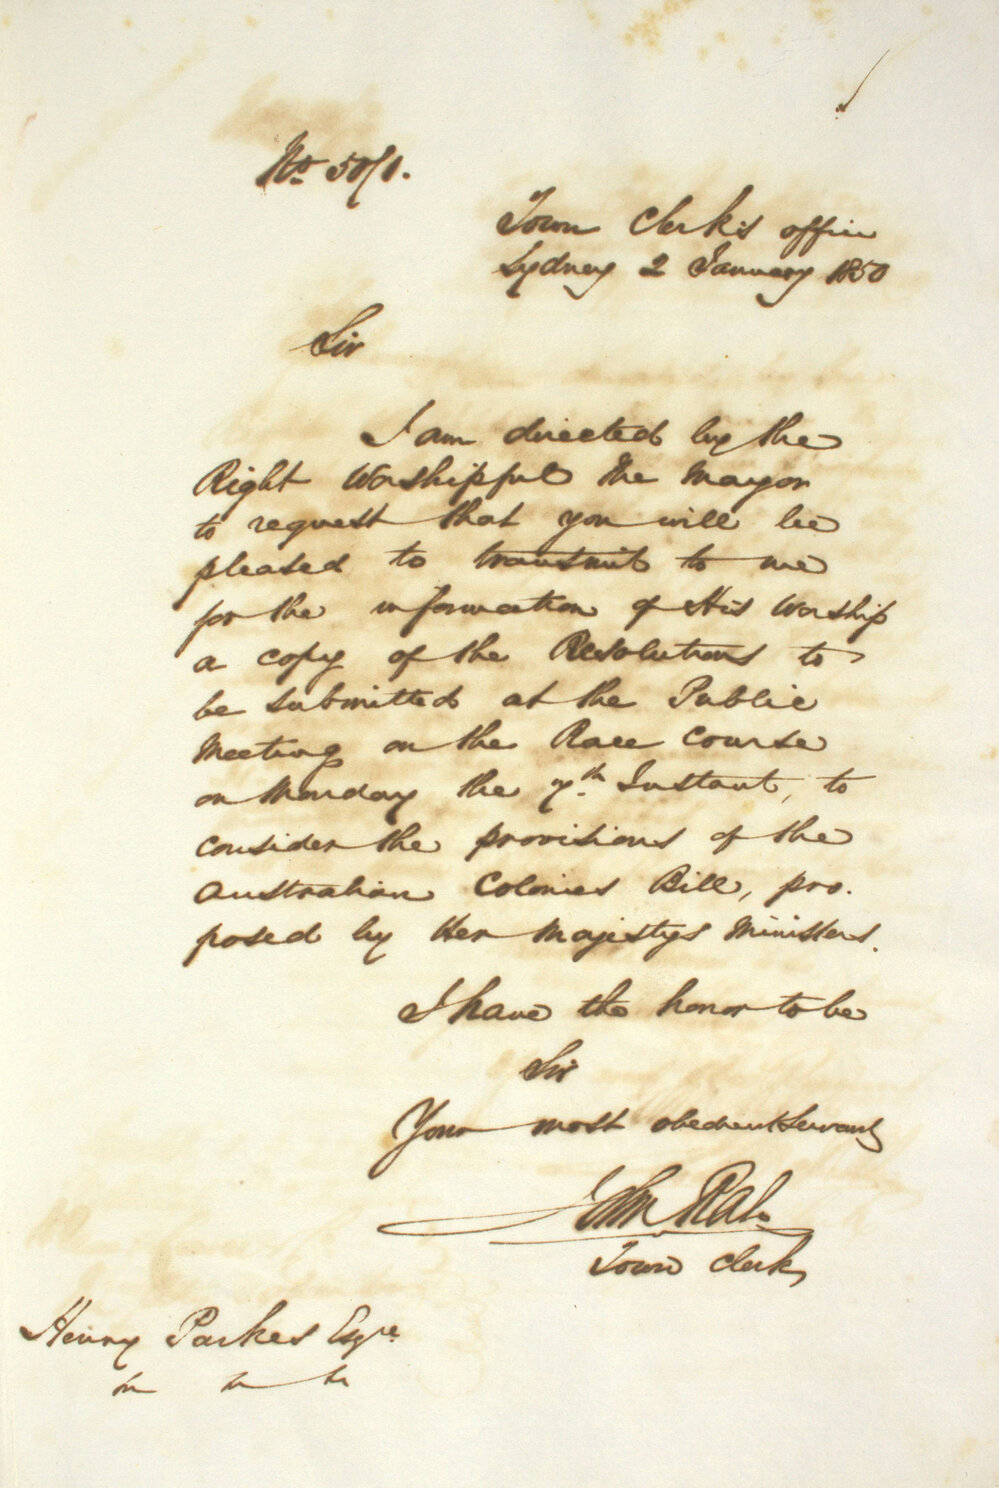 No 50/1.
Town Clerk's office
Sydney 2 January 1850
Sir
I am directed by the
Right Worshipful the Mayor
to request that you will be
pleased to transmit to me
for the information of His Worship
a copy of the Resolutions to
be submitted at the Public
Meeting on the Race Course
on Monday the 7th Instant, to
consider the provisions of the
Australian Colonies Bill, pro.
posed by Her Majestys Ministers.
I have the honor to be
Sir
Your most obedient Servant
John
Town Clerk
Henry Parkes Esqre